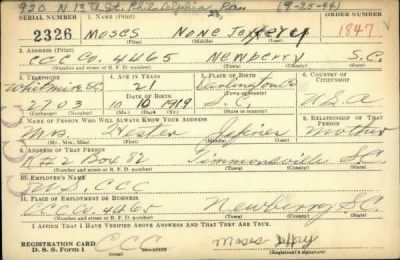 920 N 13th St. Philadelphia, Pa. (9-25-44)
SERIAL NUMBER 1. NAME (Print) ORDER NUMBER
2326 Moses None Jeffery 1847
(First) (Middle) (Last)
2. ADDRESS (Print)
CCC Co. 4465 Newberry S.C.
(Number and street or R. F. D. number) (Town) (County) (State)
3. TELEPHONE 4. AGE IN YEARS 5. PLACE OF BIRTH 6. COUNTRY OF CITIZENSHIP
Whitmire S.C. 21 Darlington Co
DATE OF BIRTH
2703 10 10 1919 S.C. U.S.A
(Exchange) (Number) (Mo.) (Day) (Yr.) (State or country)
7. NAME OF PERSON WHO WILL ALWAYS KNOW YOUR ADDRESS 8. RELATIONSHIP OF THAT PERSON
Mrs. Hester Jefries Mother
(Mr., Mrs., Miss) (First) (Middle) (Last)
9. ADDRESS OF THAT PERSON
R#2 Box 82 Timmonsville S.C.
(Number and street or R. F. D. number) (Town) (County) (State)
10. EMPLOYER'S NAME
U.S. CCC
11. PLACE OF EMPLOYMENT OR BUSINESS
CCC Co. 4465 Newberry S.C.
(Number and street or R. F. D. number) (Town) (County) (State)
I AFFIRM THAT I HAVE VERIFIED ABOVE ANSWERS AND THAT THEY ARE TRUE.
REGISTRATION CARD
D. S. S. Form 1 CCC Moses
(over) (Registrant's signature)